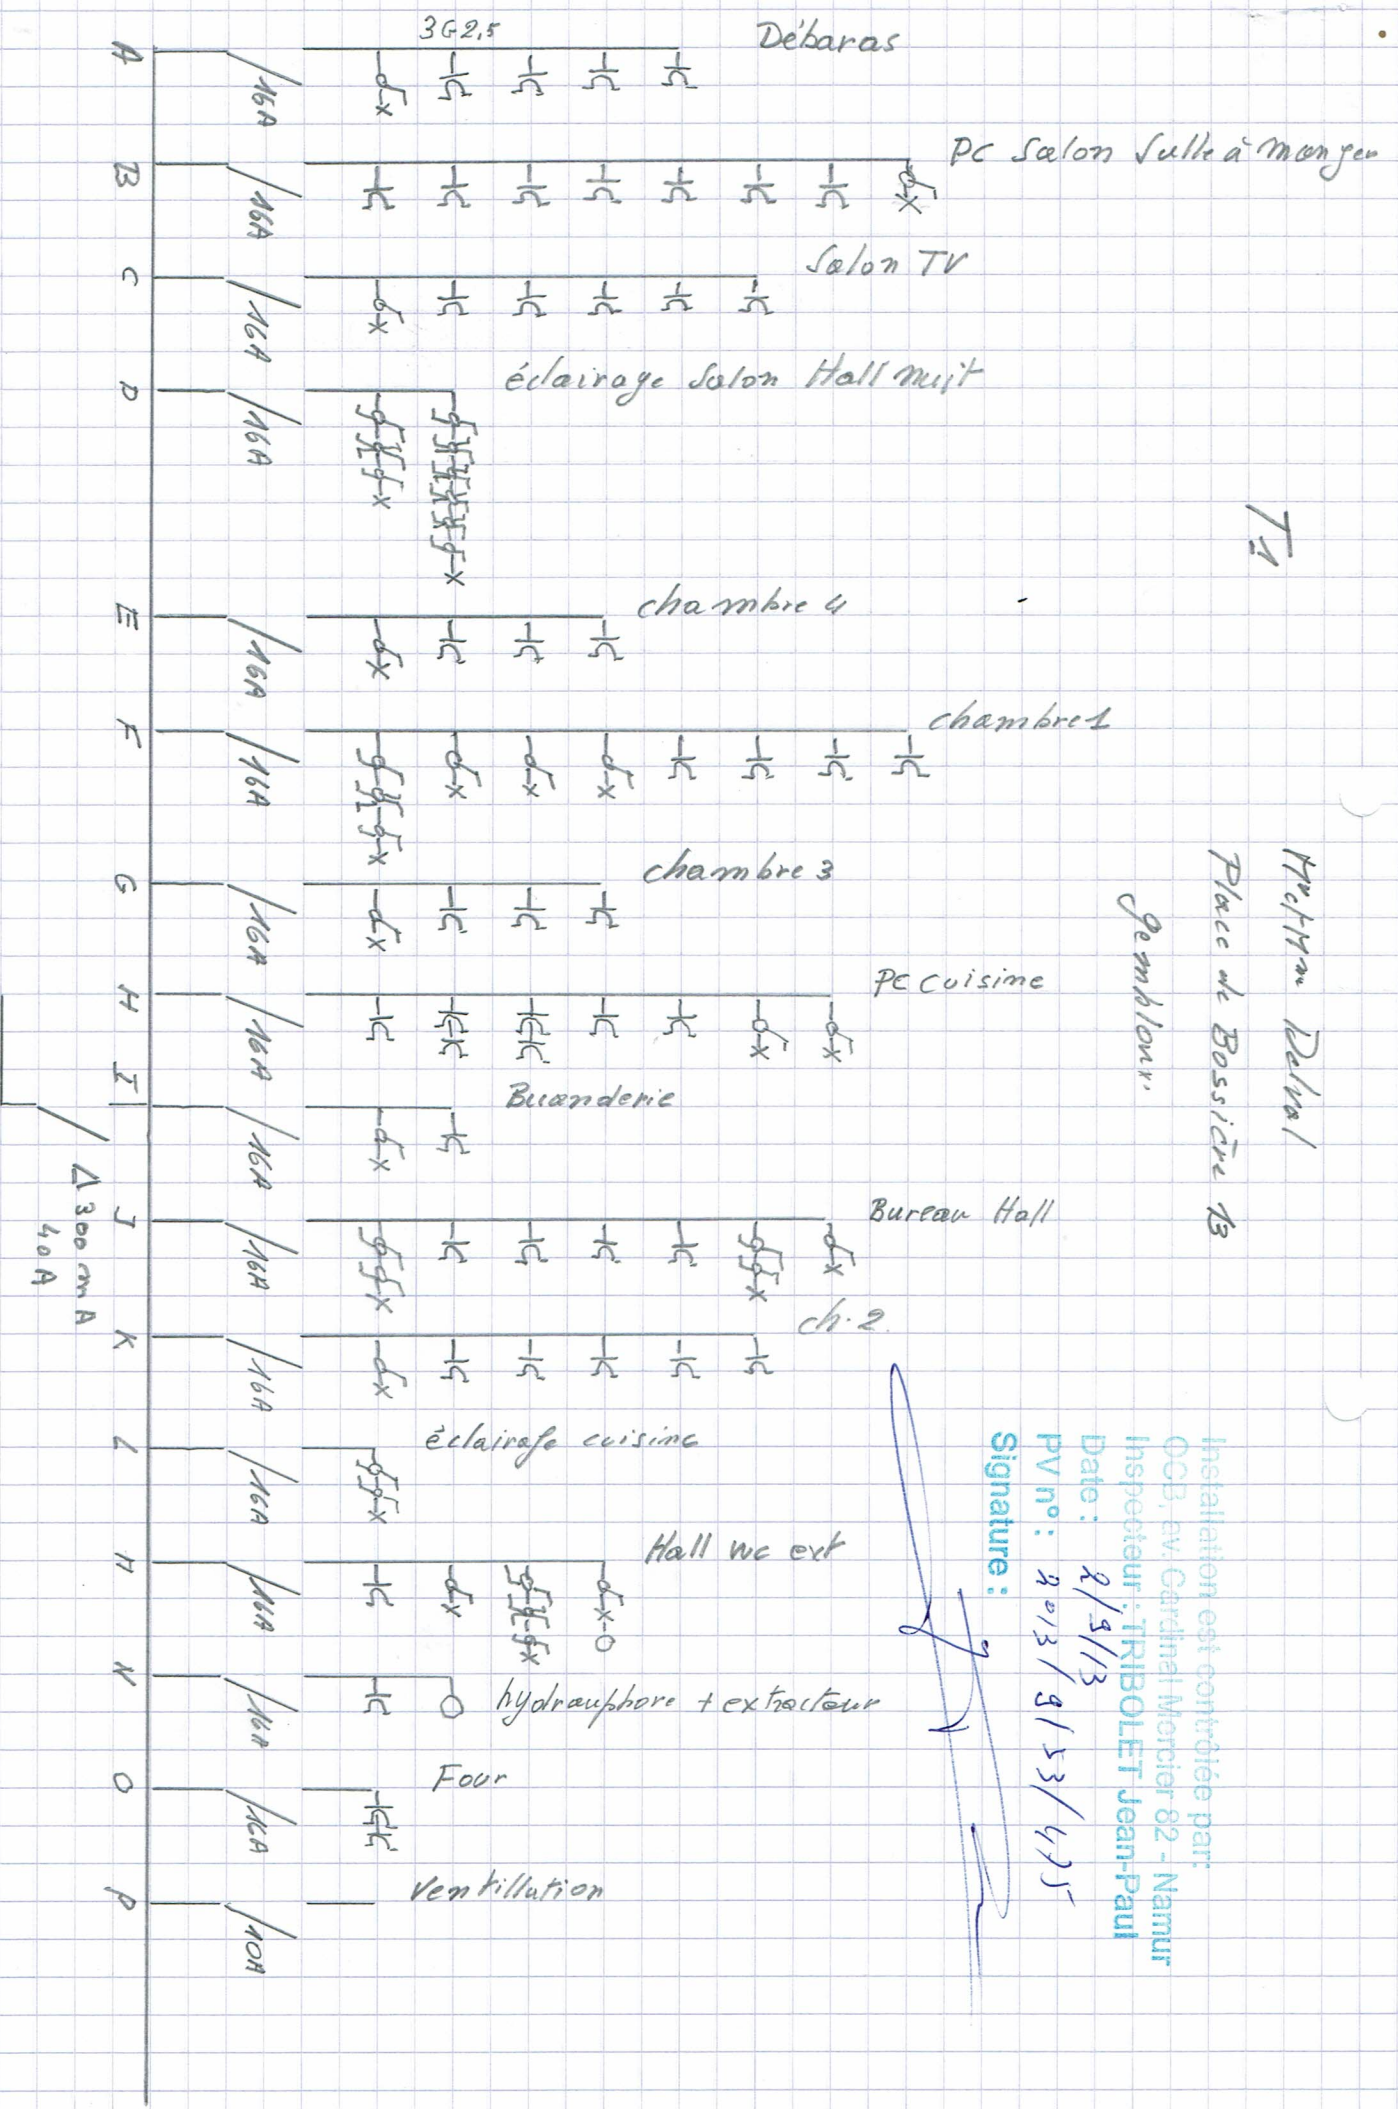 3G2,5
Débaras
A
16A
PC Salon Salle à manger
B
16A
Salon TV
C
16A
éclairage Salon Hall nuit
D
16A
T1
chambre 4
E
16A
chambre 1
F
16A
chambre 3
G
16A
PC cuisine
H
16A
Buanderie
I
16A
Δ 300 mA
40A
Bureau Hall
J
16A
ch. 2
K
16A
éclairage cuisine
L
16A
Hall wc ext
M
16A
hydrauphore + extracteur
N
16A
Four
O
16A
Ventillation
P
10A
Mr et Mme Delval
Place de Bossière 13
Gembloux.
Installation est contrôlée par:
OCB, av. Cardinal Mercier 82 - Namur
Inspecteur : TRIBOLET Jean-Paul
Date : 2/9/13
PV n° : 2013/9/53/475
Signature :